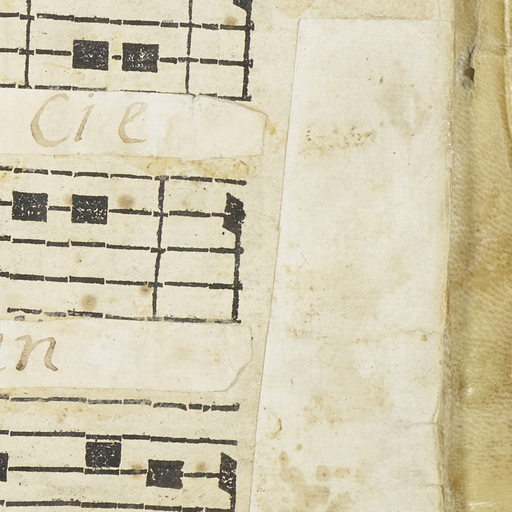 Cie
in